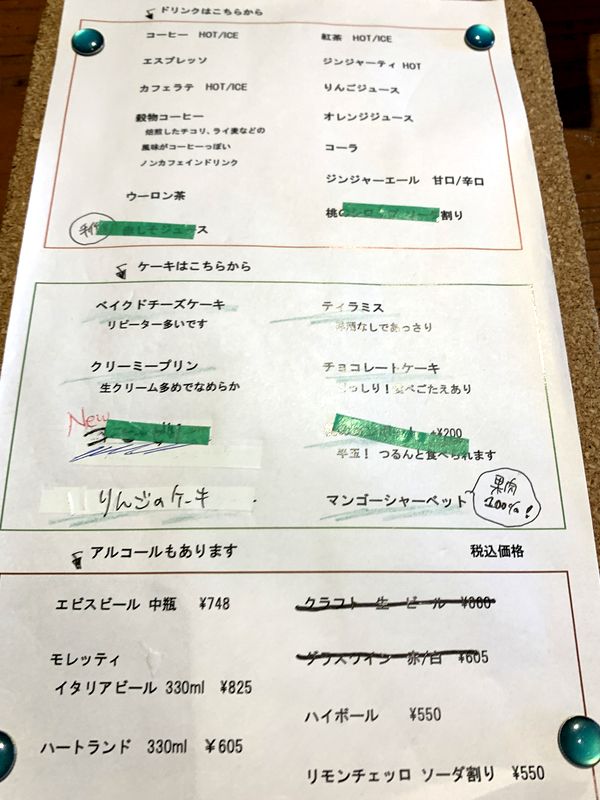 ドリンクはこちらから
コーヒー HOT/ICE
エスプレッソ
カフェラテ HOT/ICE
穀物コーヒー
焙煎したチコリ、ライ麦などの
風味がコーヒーっぽい
ノンカフェインドリンク
ウーロン茶
手作り 赤しそジュース
紅茶 HOT/ICE
ジンジャーティ HOT
りんごジュース
オレンジジュース
コーラ
ジンジャーエール 甘口/辛口
桃のシロップ ソーダ割り
ケーキはこちらから
ベイクドチーズケーキ
リピーター多いです
クリーミープリン
生クリーム多めでなめらか
New
りんごのケーキ
ティラミス
洋酒なしであっさり
チョコレートケーキ
どっしり！食べごたえあり
+¥200
半玉！ つるんと食べられます
マンゴーシャーベット
果肉
100%！
アルコールもあります
税込価格
エビスビール 中瓶 ¥748
モレッティ
イタリアビール 330ml ¥825
ハートランド 330ml ¥605
クラフト 生 ビール ¥880
グラスワイン 赤/白 ¥605
ハイボール ¥550
リモンチェッロ ソーダ割り ¥550